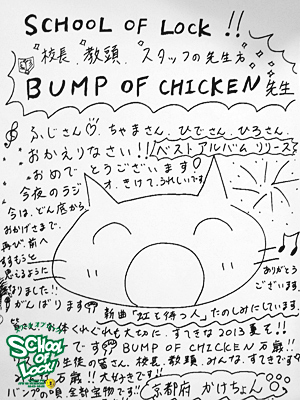 SCHOOL OF LOCK!!
校長 教頭 スタッフの先生方
BUMP OF CHICKEN 先生
ふじさん♡ ちゃまさん ひでさん ひろさん
おかえりなさい!! ベストアルバム リリース
おめでとうございます
今夜のラジオ、きけて、うれしいです
今は、どん底から
おかげさまで、
再び、前へ
すすもうと
思えるように
なりました!!
がんばります
ありがとう
ございます
新曲「虹を待つ人」たのしみにしています。
お体くれぐれも大切に、すてきな2013夏を!!
です BUMP OF CHICKEN 万歳!!
生徒の皆さん、校長、教頭、みんな、すてきです
万歳!! 大好きです!!
バンプの唄、全部宝物です!!
京都府 かけちょん
SCHOOL OF LOCK!